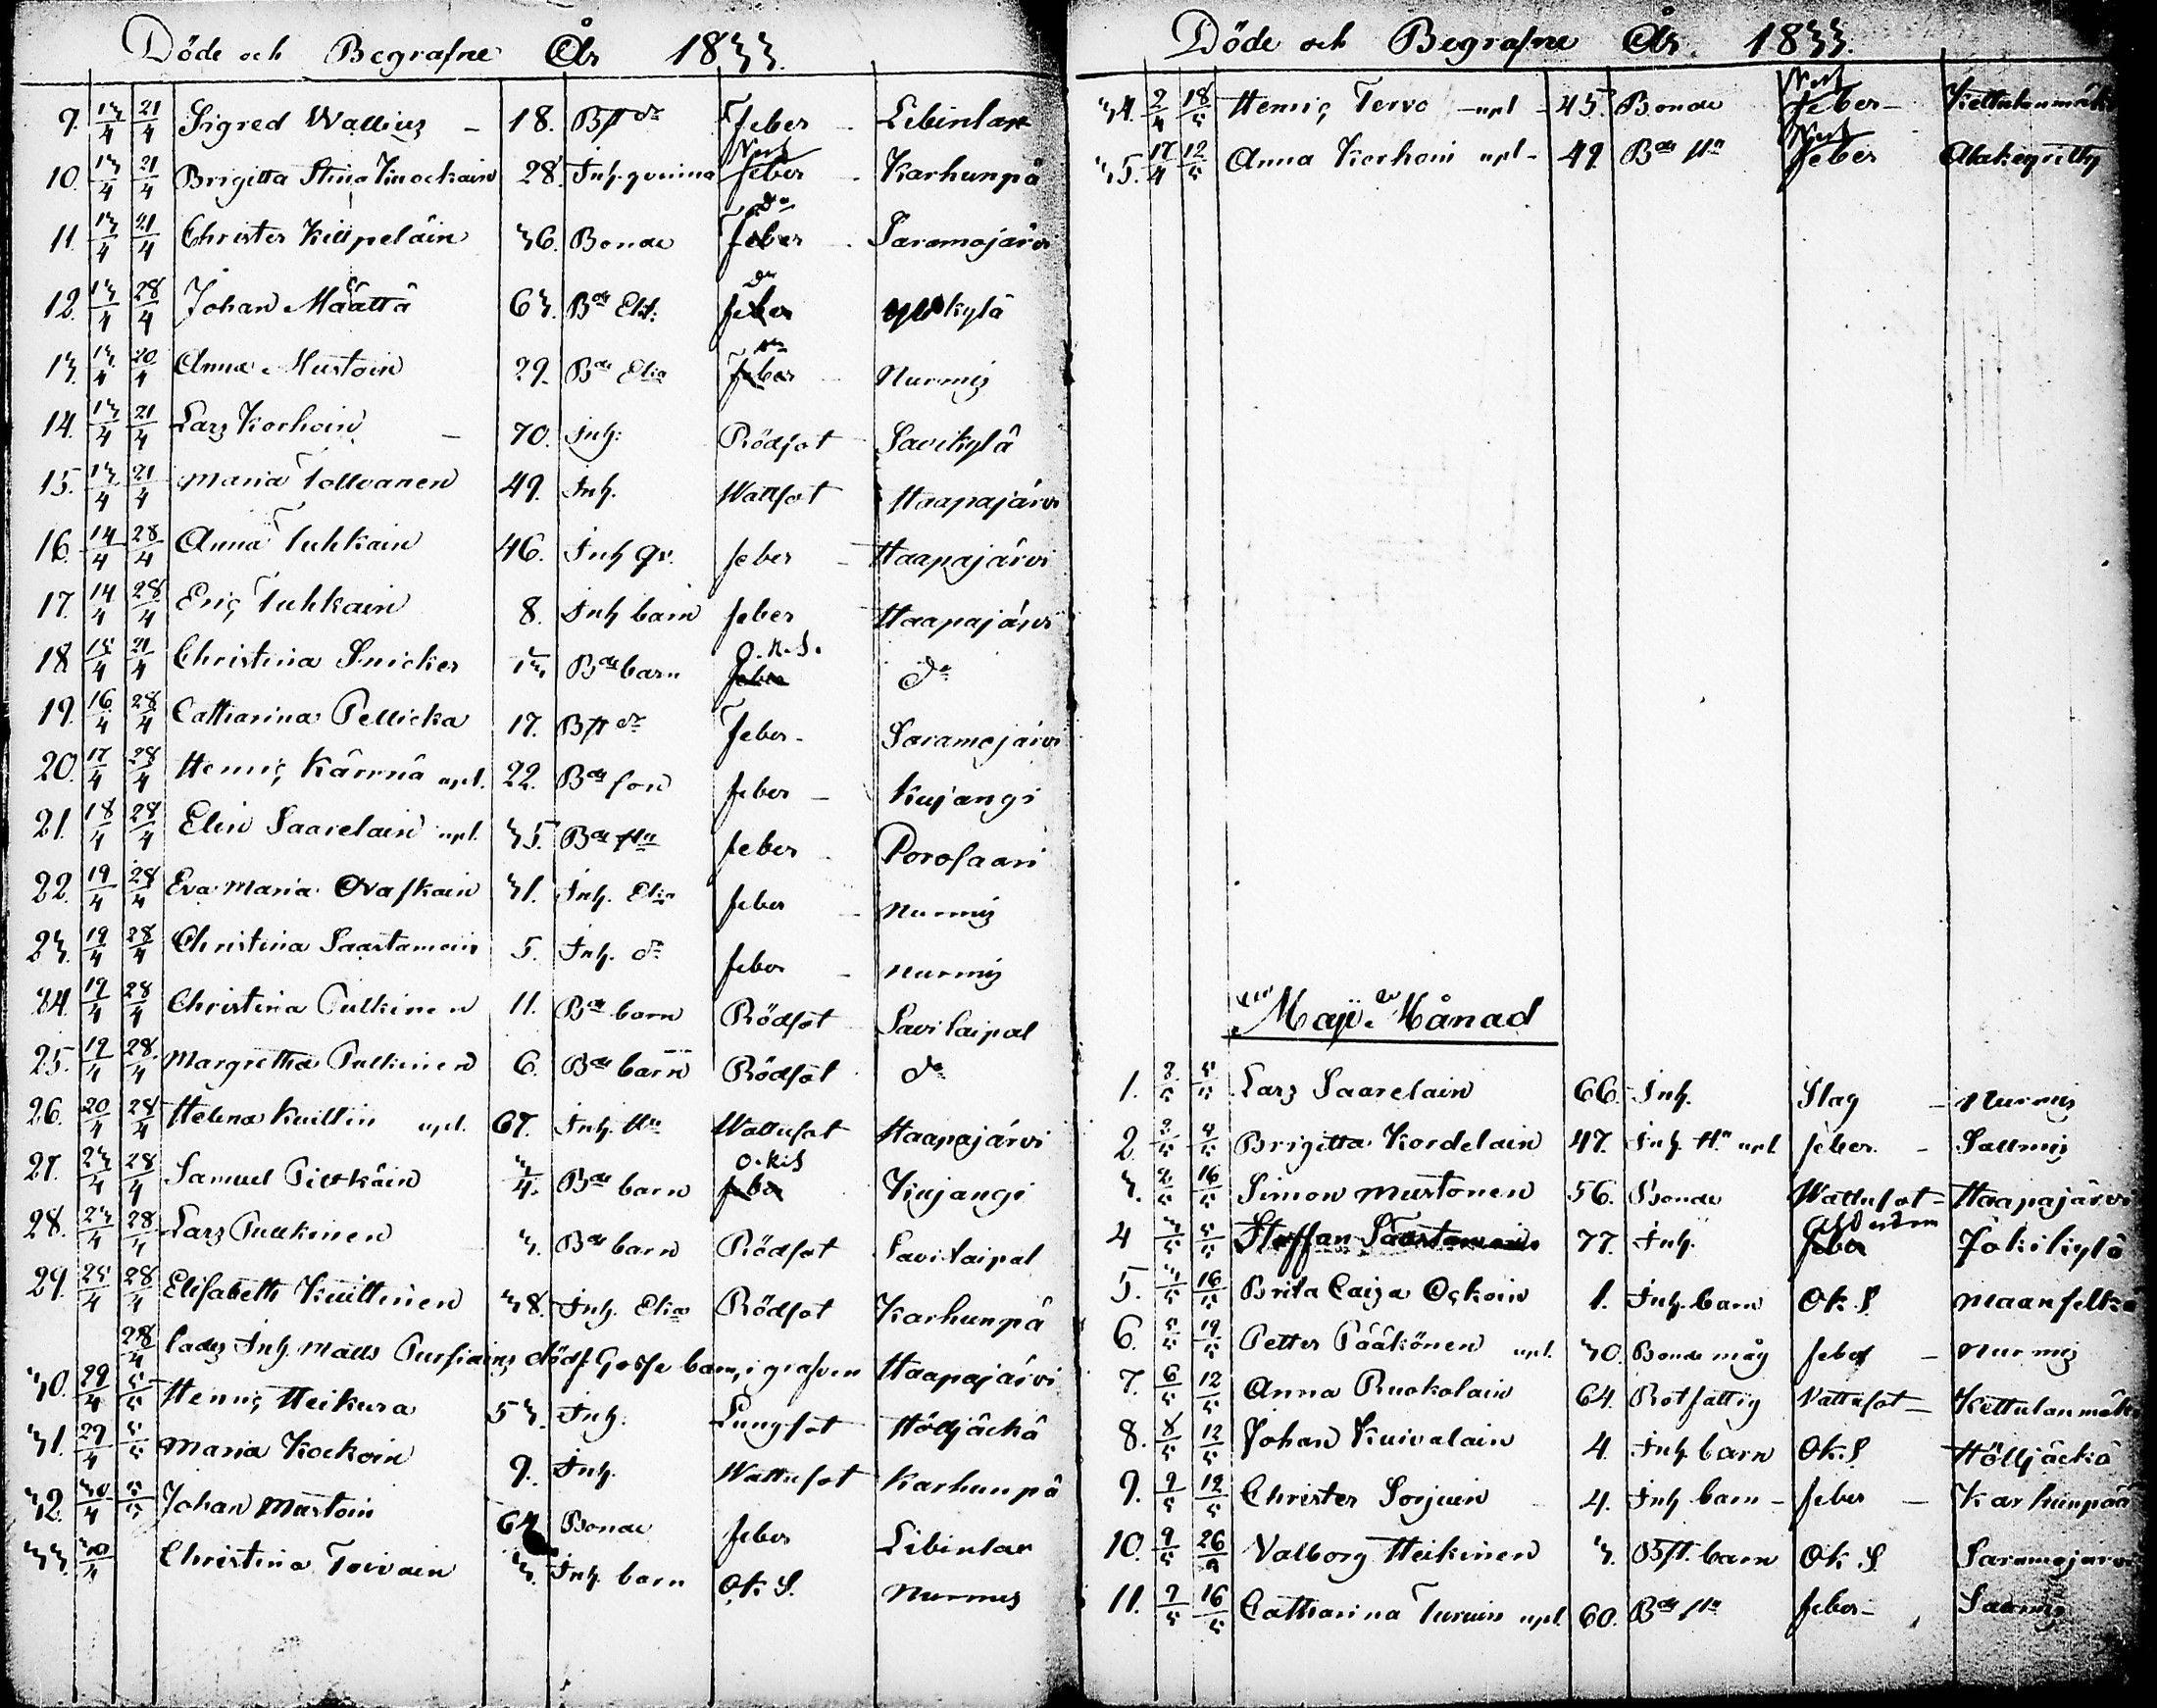 Döde och Begrafne År 1833.
9. 13/4 21/4 Sigred Wallius – 18. Bst dr Feber – Libinlax
10. 13/4 21/4 Brigitta Stina 28. Inh. qvinna Nerf feber – Karhunpä
11. 13/4 21/4 Christer Kilpeläin 36. Bonde do Feber – Saramojärvi
12. 13/4 28/4 Johan Määttä 63. Bde Elt: do feber kylä
13. 13/4 20/4 Anna Mustoin 29. Bde Elia do Feber – Nurmis
14. 13/4 21/4 Lars Korhoin – 70. Inh: Rödsot Savikylä
15. 13/4 21/4 Maria Tollvanen 49. Inh. Wattsot Haapajärvi
16. 14/4 28/4 Anna Tuhkain 46. Inh qv. feber – Haapajärvi
17. 14/4 28/4 Eric Tuhkain 8. Inh barn feber Haapajärvi
18 15/4 21/4 Christina Snicker Bde barn O.K.S. feber do
19. 16/4 28/4 Catharina Pellicka 17. Bst dr Feber – Saramojärvi
20. 17/4 28/4 Henric Kärnä upl. 22. Bde son feber – Kujangi
21. 18/4 28/4 Elin Saarelain upl. 35. Bde Hu feber – Porosaari
22. 19/4 28/4 Eva Maria Ovaskain 31. Inh. Elia feber – Nurmis
23. 19/4 28/4 Christina Saastamoin 5. Inh. dr feber – Nurmis
24. 19/4 28/4 Christina Pulkinen 11. Bde barn Rödsot Savilaipal
25. 19/4 28/4 Margretha Pulkinen 6. Bde barn Rödsot do
26. 20/4 28/4 Helena Kuittin upl. 67. Inh. Hu Wattusot Haapajärvi
27. 23/4 28/4 Samuel Pitkäin 3/4. Bde barn O.k.S feber Kujangi
28. 23/4 28/4 Lars Pulkinen 3. Bde barn Rödsot Savilaipal
29. 25/4 28/4 Elisabeth Kuittinen 38. Inh. Elia Rödsot Karhunpä
28/4 lades Inh. Matts Pursiains dödf. Gosse barn, i grafven Haapajärvi
30. 29/4 5/5 Henric Heikura 53. Inh. Lungsot Höljäckä
31. 29/4 5/5 Maria Kockoin 9. Inh. Wattusot Karhunpä
32. 30/4 5/5 Johan Mustoin 64 Bonde feber Libinlax
33. 30/4 Christina Toivain 3. Inh. barn OK S. Nurmes
Döde och Begrafne År 1833.
34. 2/4 18/5 Henric Tervo upl – 45. Bonde Nerf feber – Kettulanmäki
35. 17/4 12/5 Anna Korhoin upl – 49. Bde Hu Nerf feber
Maji Månad
1. 2/5 5/5 Lars Saarelain 66. Inh. Slag – Nurmis
2. 2/5 4/5 Brigitta Kordelain 47. Inh. Hu upl feber. – Sallmis
3. 2/5 16/5 Simon Mustonen 56. Bonde Wattusot – Haapajärvi
4 3/5 5/5 Staffan Saastamoin 77. Inh. Ålderdom feber Jokikylä
5. 3/5 16/5 Brita Caisa Ockoin 1. Inh. barn OK. S. Maanselkä
6. 5/5 19/5 Petter Pääkönen upl. 30. Bonde måg feber – Nurmis
7. 6/5 12/5 Anna Ruokolain 64. Rotfattig Vattusot – Kettulanmäki
8. 8/5 12/5 Johan Kuivalain 4. Inh barn OK. S Höljäckä
9. 9/5 12/5 Christer Sorjuin 4. Inh barn – feber – Karhunpää
10. 9/5 26/5 Valborg Heikinen 3. Bst. barn OK S. Saramojärvi
11. 9/5 16/5 Catharina Turuin upl. 60. Bde Hu feber –